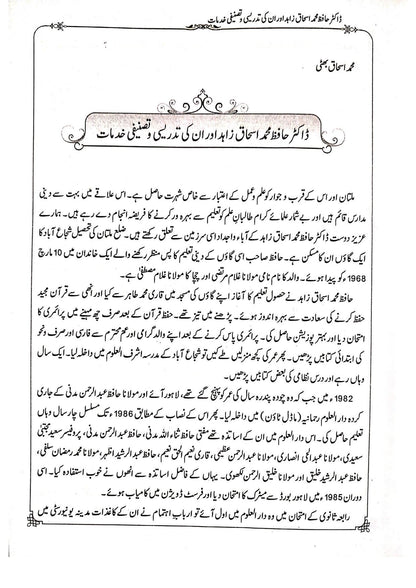 ڈاکٹر حافظ محمد اسحاق زاہد اور ان کی تدریسی و تصنیفی خدمات
محمد اسحاق بھٹی
ڈاکٹر حافظ محمد اسحاق زاہد اور ان کی تدریسی و تصنیفی خدمات
ملتان اور اس کے قرب و جوار کو علم و عمل کے اعتبار سے خاص شہرت حاصل ہے۔ اس علاقے میں بہت سے دینی
مدارس قائم ہیں اور بے شمار علمائے کرام طالبانِ علم کو تعلیم سے بہرہ ور کرنے کا فریضہ انجام دے رہے ہیں۔ ہمارے
عزیز دوست ڈاکٹر حافظ محمد اسحاق زاہد کے آباء و اجداد اسی سرزمین سے تعلق رکھتے ہیں۔ ضلع ملتان کی تحصیل شجاع آباد کا
ایک گاؤں ان کا مسکن ہے۔ حافظ صاحب اسی گاؤں کے دینی تعلیم کا پس منظر رکھنے والے ایک خاندان میں 10 مارچ
1968ء کو پیدا ہوئے۔ والد کا نام نامی مولانا غلام مرتضیٰ اور چچا کا مولانا غلام مصطفیٰ ہے۔
حافظ محمد اسحاق زاہد نے حصول تعلیم کا آغاز اپنے گاؤں کی مسجد میں قاری محمد طاہر سے کیا اور انھی سے قرآن مجید
حفظ کرنے کی سعادت سے بہرہ اندوز ہوئے۔ پڑھنے میں تیز تھے۔ حفظ قرآن کے بعد صرف چھ مہینے میں پرائمری کا
امتحان دیا اور بہتر پوزیشن حاصل کی۔ پرائمری پاس کرنے کے بعد اپنے والد گرامی اور عم محترم سے فارسی اور صرف و نحو
کی ابتدائی کتابیں پڑھیں۔ پھر عمر کی کچھ منزلیں طے کیں تو شجاع آباد کے مدرسہ اشرف العلوم میں داخلہ لیا۔ ایک سال
وہاں رہے اور درس نظامی کی بعض کتابیں پڑھیں۔
1982ء میں جب کہ وہ چودہ پندرہ سال کی عمر کو پہنچ گئے تھے، لاہور آئے اور مولانا حافظ عبدالرحمن مدنی کے جاری
کردہ دار العلوم رحمانیہ (ماڈل ٹاؤن) میں داخلہ لیا۔ پھر اس کے نصاب کے مطابق 1986ء تک مسلسل چار سال وہاں
تعلیم حاصل کی۔ اس دار العلوم میں ان کے اساتذہ تھے مفتی حافظ ثناء اللہ مدنی، حافظ عبدالرحمن مدنی، پروفیسر سعید مجتبیٰ
سعیدی، مولانا عبدالحی انصاری، مولانا عبدالرحمن عظیمی، قاری نعیم الحق نعیم، حافظ عبدالرشید اظہر، مولانا محمد رمضان سلفی،
حافظ عبدالرشید خلیق اور مولانا خلیق الرحمن لکھوی۔ یہاں کے فاضل اساتذہ سے انھوں نے خوب استفادہ کیا۔ اسی
دوران 1985ء میں لاہور بورڈ سے میٹرک کا امتحان دیا اور فرسٹ ڈویژن میں کامیاب ہوئے۔
رابعہ ثانوی کے امتحان میں وہ دار العلوم میں اول آئے تو ارباب اہتمام نے ان کے کاغذات مدینہ یونیورسٹی میں